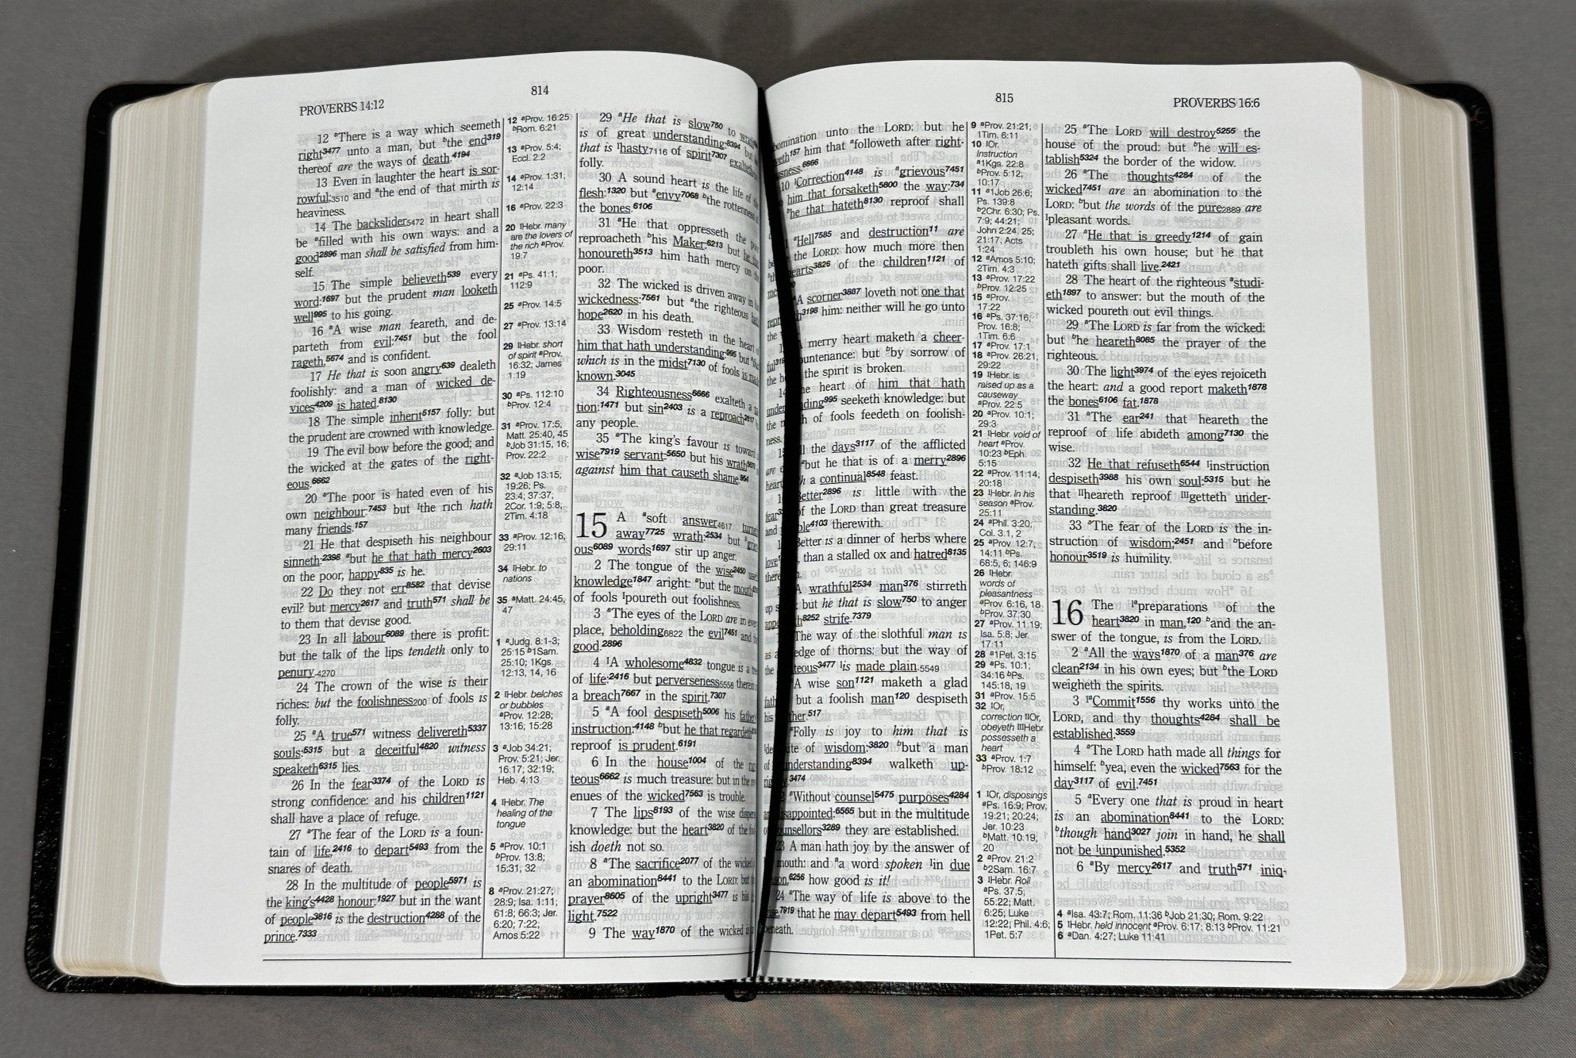 814
PROVERBS 14:12
12 ªThere is a way which seemeth
right³⁴⁷⁷ unto a man, but ᵇthe end³¹⁹
thereof are the ways of death.⁴¹⁹⁴
13 Even in laughter the heart is sor-
rowful;₃₅₁₀ and ªthe end of that mirth is
heaviness.
14 The backslider₅₄₇₂ in heart shall
be ªfilled with his own ways: and a
good²⁸⁹⁶ man shall be satisfied from him-
self.
15 The simple believeth⁵³⁹ every
word:¹⁶⁹⁷ but the prudent man looketh
well⁹⁹⁵ to his going.
16 ªA wise man feareth, and de-
parteth from evil:⁷⁴⁵¹ but the fool
rageth,⁵⁶⁷⁴ and is confident.
17 He that is soon angry⁶³⁹ dealeth
foolishly: and a man of wicked de-
vices⁴²⁰⁹ is hated.⁸¹³⁰
18 The simple inherit⁵¹⁵⁷ folly: but
the prudent are crowned with knowledge.
19 The evil bow before the good; and
the wicked at the gates of the right-
eous.⁶⁶⁶²
20 ªThe poor is hated even of his
own neighbour:⁷⁴⁵³ but ᴵthe rich hath
many friends.¹⁵⁷
21 He that despiseth his neighbour
sinneth:²³⁹⁸ ªbut he that hath mercy²⁶⁰³
on the poor, happy⁸³⁵ is he.
22 Do they not err⁸⁵⁸² that devise
evil? but mercy²⁶¹⁷ and truth⁵⁷¹ shall be
to them that devise good.
23 In all labour⁶⁰⁸⁹ there is profit:
but the talk of the lips tendeth only to
penury.₄₂₇₀
24 The crown of the wise is their
riches: but the foolishness₂₀₀ of fools is
folly.
25 ªA true⁵⁷¹ witness delivereth⁵³³⁷
souls:⁵³¹⁵ but a deceitful⁴⁸²⁰ witness
speaketh⁶³¹⁵ lies.
26 In the fear³³⁷⁴ of the LORD is
strong confidence: and his children¹¹²¹
shall have a place of refuge.
27 ªThe fear of the LORD is a foun-
tain of life,²⁴¹⁶ to depart⁵⁴⁹³ from the
snares of death.
28 In the multitude of people⁵⁹⁷¹ is
the king's⁴⁴²⁸ honour:¹⁹²⁷ but in the want
of people³⁸¹⁶ is the destruction⁴²⁸⁸ of the
prince.⁷³³³
12 ªProv. 16:25
ᵇRom. 6:21
13 ªProv. 5:4;
Eccl. 2:2
14 ªProv. 1:31;
12:14
16 ªProv. 22:3
20 ᴵHebr. many
are the lovers of
the rich ªProv.
19:7
21 ªPs. 41:1;
112:9
25 ªProv. 14:5
27 ªProv. 13:14
29 ᴵHebr. short
of spirit ªProv.
16:32; James
1:19
30 ªPs. 112:10
ᵇProv. 12:4
31 ªProv. 17:5;
Matt. 25:40, 45
ᵇJob 31:15, 16;
Prov. 22:2
32 ªJob 13:15;
19:26; Ps.
23:4; 37:37,
2Cor. 1:9; 5:8,
2Tim. 4:18
33 ªProv. 12:16,
29:11
34 ᴵHebr. to
nations
35 ªMatt. 24:45,
47
1 ªJudg. 8:1-3;
25:15 ᵇ1Sam.
25:10; 1Kgs.
12:13, 14, 16
2 ᴵHebr. belches
or bubbles
ªProv. 12:28;
13:16; 15:28
3 ªJob 34:21;
Prov. 5:21; Jer.
16:17; 32:19;
Heb. 4:13
4 ᴵHebr. The
healing of the
tongue
5 ªProv. 10:1
ᵇProv. 13:8;
15:31, 32
8 ªProv. 21:27;
28:9; Isa. 1:11;
61:8; 66:3; Jer.
6:20; 7:22;
Amos 5:22
29 ªHe that is slow⁷⁵⁰ to
is of great understanding:⁸³⁹⁴ but
that is ᴵhasty₇₁₁₆ of spirit⁷³⁰⁷
folly.
30 A sound heart is the life of
flesh:¹³²⁰ but ªenvy⁷⁰⁶⁸ ᵇthe rottenness
the bones.⁶¹⁰⁶
31 ªHe that oppresseth the
reproacheth ᵇhis Maker:⁶²¹³ but
honoureth³⁵¹³ him hath mercy on
poor.
32 The wicked is driven away in
wickedness:⁷⁵⁶¹ but ªthe righteous
hope²⁶²⁰ in his death.
33 Wisdom resteth in the heart
him that hath understanding:⁹⁹⁵ but
which is in the midst⁷¹³⁰ of fools is
known.³⁰⁴⁵
34 Righteousness⁶⁶⁶⁶ exalteth a
tion:¹⁴⁷¹ but sin²⁴⁰³ is a reproach²⁶¹⁷
any people.
35 ªThe king's favour is toward
wise⁷⁹¹⁹ servant:⁵⁶⁵⁰ but his wrath
against him that causeth shame.⁹⁵⁴
15 A ªsoft answer₄₆₁₇
away⁷⁷²⁵ wrath:²⁵³⁴ but
ous⁶⁰⁸⁹ words¹⁶⁹⁷ stir up anger.
2 The tongue of the wise²⁴⁵⁰
knowledge¹⁸⁴⁷ aright: ªbut the
of fools ᴵpoureth out foolishness.
3 ªThe eyes of the LORD are in
place, beholding₆₈₂₂ the evil⁷⁴⁵¹ and
good.²⁸⁹⁶
4 ᴵA wholesome⁴⁸³² tongue is a
of life:²⁴¹⁶ but perverseness₅₅₅₈
a breach⁷⁶⁶⁷ in the spirit.⁷³⁰⁷
5 ªA fool despiseth⁵⁰⁰⁶ his
instruction:⁴¹⁴⁸ ᵇbut he that
reproof is prudent.⁶¹⁹¹
6 In the house¹⁰⁰⁴ of the
teous⁶⁶⁶² is much treasure: but in the
enues of the wicked⁷⁵⁶³ is trouble.
7 The lips⁸¹⁹³ of the wise
knowledge: but the heart³⁸²⁰ of the
ish doeth not so.
8 ªThe sacrifice²⁰⁷⁷ of the
an abomination⁸⁴⁴¹ to the LORD: but
prayer⁸⁶⁰⁵ of the upright³⁴⁷⁷ is
light.⁷⁵²²
9 The way¹⁸⁷⁰ of the wicked
815
PROVERBS 16:6
unto the LORD: but he
him that ªfolloweth after right-
10 ᴵCorrection⁴¹⁴⁸ is ªgrievous⁷⁴⁵¹
him that forsaketh⁵⁸⁰⁰ the way:⁷³⁴
ᵇhe that hateth⁸¹³⁰ reproof shall
ªHell⁷⁵⁸⁵ and destruction¹¹ are
the LORD: how much more then
hearts³⁸²⁶ of the children¹¹²¹ of
ªA scorner³⁸⁸⁷ loveth not one that
him: neither will he go unto
merry heart maketh a cheer-
countenance: but ᵇby sorrow of
the spirit is broken.
heart of him that hath
seeketh knowledge: but
of fools feedeth on foolish-
ness.
the days³¹¹⁷ of the afflicted
ªbut he that is of a merry²⁸⁹⁶
a continual⁸⁵⁴⁸ feast.
Better²⁸⁹⁶ is little with the
of the LORD than great treasure
therewith.
Better is a dinner of herbs where
than a stalled ox and hatred⁸¹³⁵
A wrathful²⁵³⁴ man³⁷⁶ stirreth
but he that is slow⁷⁵⁰ to anger
strife.⁷³⁷⁹
The way of the slothful man is
hedge of thorns: but the way of
is made plain.₅₅₄₉
A wise son¹¹²¹ maketh a glad
but a foolish man¹²⁰ despiseth
ªFolly is joy to him that is
of wisdom:³⁸²⁰ ᵇbut a man
understanding⁸³⁹⁴ walketh up-
ªWithout counsel⁵⁴⁷⁵ purposes⁴²⁸⁴
disappointed:⁶⁵⁶⁵ but in the multitude
counsellors³²⁸⁹ they are established.
A man hath joy by the answer of
mouth: and ªa word spoken ᴵin due
how good is it!
ªThe way of life is above to the
that he may depart⁵⁴⁹³ from hell
beneath.
9 ªProv. 21:21;
1Tim. 6:11
10 ᴵOr,
Instruction
ª1Kgs. 22:8
ᵇProv. 5:12;
10:17
11 ªJob 26:6;
Ps. 139:8
ᵇ2Chr. 6:30; Ps.
7:9; 44:21;
John 2:24, 25;
21:17, Acts
1:24
12 ªAmos 5:10;
2Tim. 4:3
13 ªProv. 17:22
ᵇProv. 12:25
15 ªProv.
17:22
16 ªPs. 37:16;
Prov. 16:8;
1Tim. 6:6
17 ªProv. 17:1
18 ªProv. 26:21;
29:22
19 ᴵHebr. is
raised up as a
causeway
ªProv. 22:5
20 ªProv. 10:1;
29:3
21 ᴵHebr. void of
heart ªProv.
10:23 ᵇEph.
5:15
22 ªProv. 11:14;
20:18
23 ᴵHebr. In his
season ªProv.
25:11
24 ªPhil. 3:20;
Col. 3:1, 2
25 ªProv. 12:7;
14:11 ᵇPs.
68:5, 6; 146:9
26 ᴵHebr.
words of
pleasantness
ªProv. 6:16, 18
ᵇProv. 37:30
27 ªProv. 11:19;
Isa. 5:8; Jer.
17:11
28 ª1Pet. 3:15
29 ªPs. 10:1;
34:16 ᵇPs.
145:18, 19
31 ªProv. 15:5
32 ᴵOr,
correction ᴵᴵOr,
obeyeth ᴵᴵᴵHebr.
possesseth a
heart
33 ªProv. 1:7
ᵇProv. 18:12
1 ᴵOr, disposings
ªPs. 16:9; Prov.
19:21; 20:24;
Jer. 10:23
ᵇMatt. 10:19,
20
2 ªProv. 21:2
ᵇ2Sam. 16:7
3 ᴵHebr. Roll
ªPs. 37:5;
55:22; Matt.
6:25; Luke
12:22; Phil. 4:6;
1Pet. 5:7
25 ªThe LORD will destroy⁵²⁵⁵ the
house of the proud: but ᵇhe will es-
tablish⁵³²⁴ the border of the widow.
26 ªThe thoughts⁴²⁸⁴ of the
wicked⁷⁴⁵¹ are an abomination to the
LORD: ᵇbut the words of the pure₂₈₈₉ are
ᴵpleasant words.
27 ªHe that is greedy¹²¹⁴ of gain
troubleth his own house; but he that
hateth gifts shall live.²⁴²¹
28 The heart of the righteous ªstudi-
eth¹⁸⁹⁷ to answer: but the mouth of the
wicked poureth out evil things.
29 ªThe LORD is far from the wicked:
but ᵇhe heareth⁸⁰⁸⁵ the prayer of the
righteous.
30 The light³⁹⁷⁴ of the eyes rejoiceth
the heart: and a good report maketh¹⁸⁷⁸
the bones⁶¹⁰⁶ fat.¹⁸⁷⁸
31 ªThe ear²⁴¹ that heareth the
reproof of life abideth among⁷¹³⁰ the
wise.
32 He that refuseth⁶⁵⁴⁴ ᴵinstruction
despiseth³⁹⁸⁸ his own soul:⁵³¹⁵ but he
that ᴵᴵheareth reproof ᴵᴵᴵgetteth under-
standing.³⁸²⁰
33 ªThe fear of the LORD is the in-
struction of wisdom;²⁴⁵¹ and ᵇbefore
honour³⁵¹⁹ is humility.
16 The ᴵªpreparations of the
heart³⁸²⁰ in man,¹²⁰ ᵇand the an-
swer of the tongue, is from the LORD.
2 ªAll the ways¹⁸⁷⁰ of a man³⁷⁶ are
clean²¹³⁴ in his own eyes; but ᵇthe LORD
weigheth the spirits.
3 ᴵªCommit¹⁵⁵⁶ thy works unto the
LORD, and thy thoughts⁴²⁸⁴ shall be
established.³⁵⁵⁹
4 ªThe LORD hath made all things for
himself: ᵇyea, even the wicked⁷⁵⁶³ for the
day³¹¹⁷ of evil.⁷⁴⁵¹
5 ªEvery one that is proud in heart
is an abomination⁸⁴⁴¹ to the LORD:
ᵇthough hand³⁰²⁷ join in hand, he shall
not be ᴵunpunished.⁵³⁵²
6 ªBy mercy²⁶¹⁷ and truth⁵⁷¹ iniq-
4 ªIsa. 43:7; Rom. 11:36 ᵇJob 21:30; Rom. 9:22
5 ᴵHebr. held innocent ªProv. 6:17; 8:13 ᵇProv. 11:21
6 ªDan. 4:27; Luke 11:41